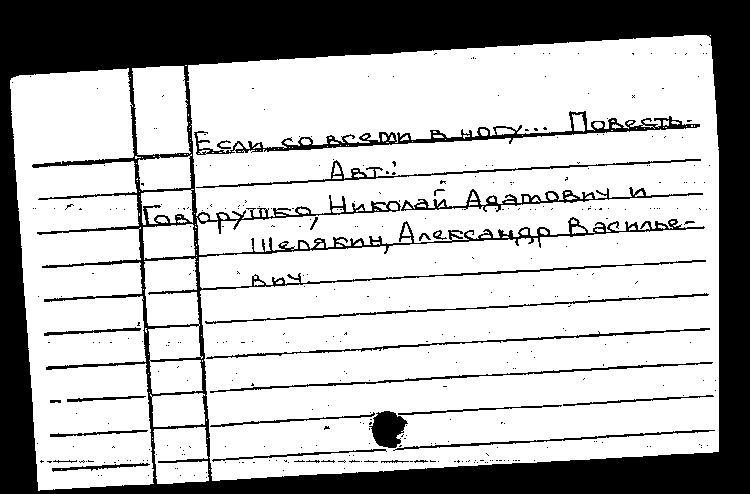 Если со всеми в ногу... Повесть.
Авт.:
Говорушко, Николай Адамович и
Шелякин, Александр Василье-
вич.